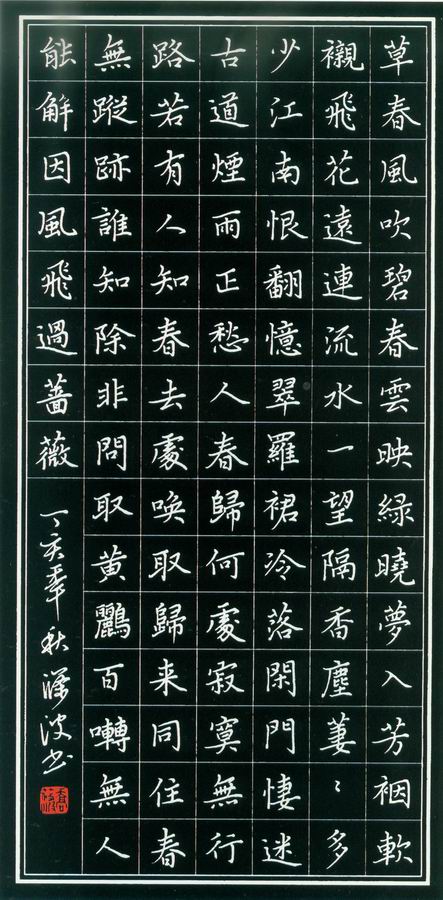 草春風吹碧春雲映緑曉夢入芳裀軟
襯飛花遠連流水一望隔香塵萋〻多
少江南恨翻憶翠羅裙冷落閑門悽迷
古道煙雨正愁人春歸何處寂寞無行
路若有人知春去處喚取歸来同住春
無蹤跡誰知除非問取黄鸝百囀無人
能解因風飛過薔薇
丁亥年秋波书